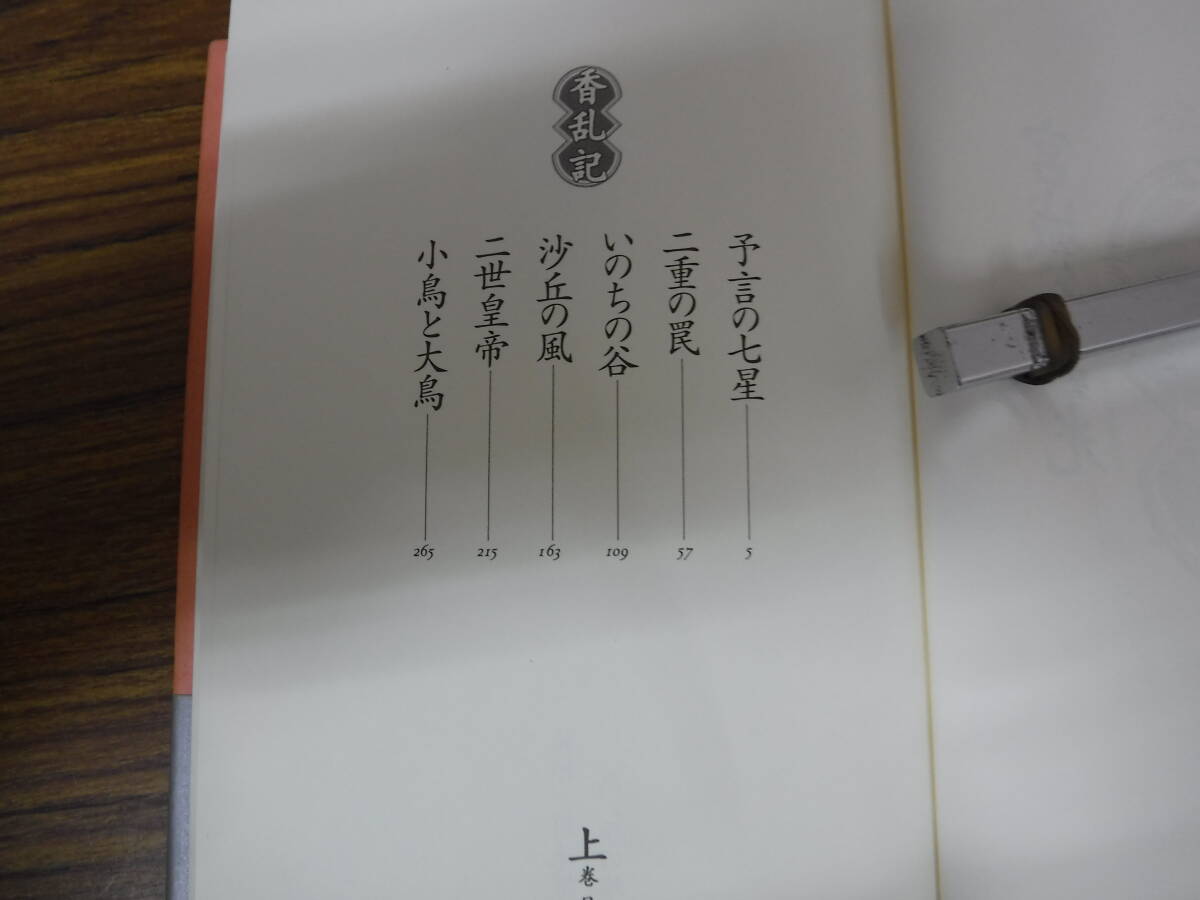 香乱記
予言の七星 5
二重の罠 57
いのちの谷 109
沙丘の風 163
二世皇帝 215
小鳥と大鳥 265
上巻